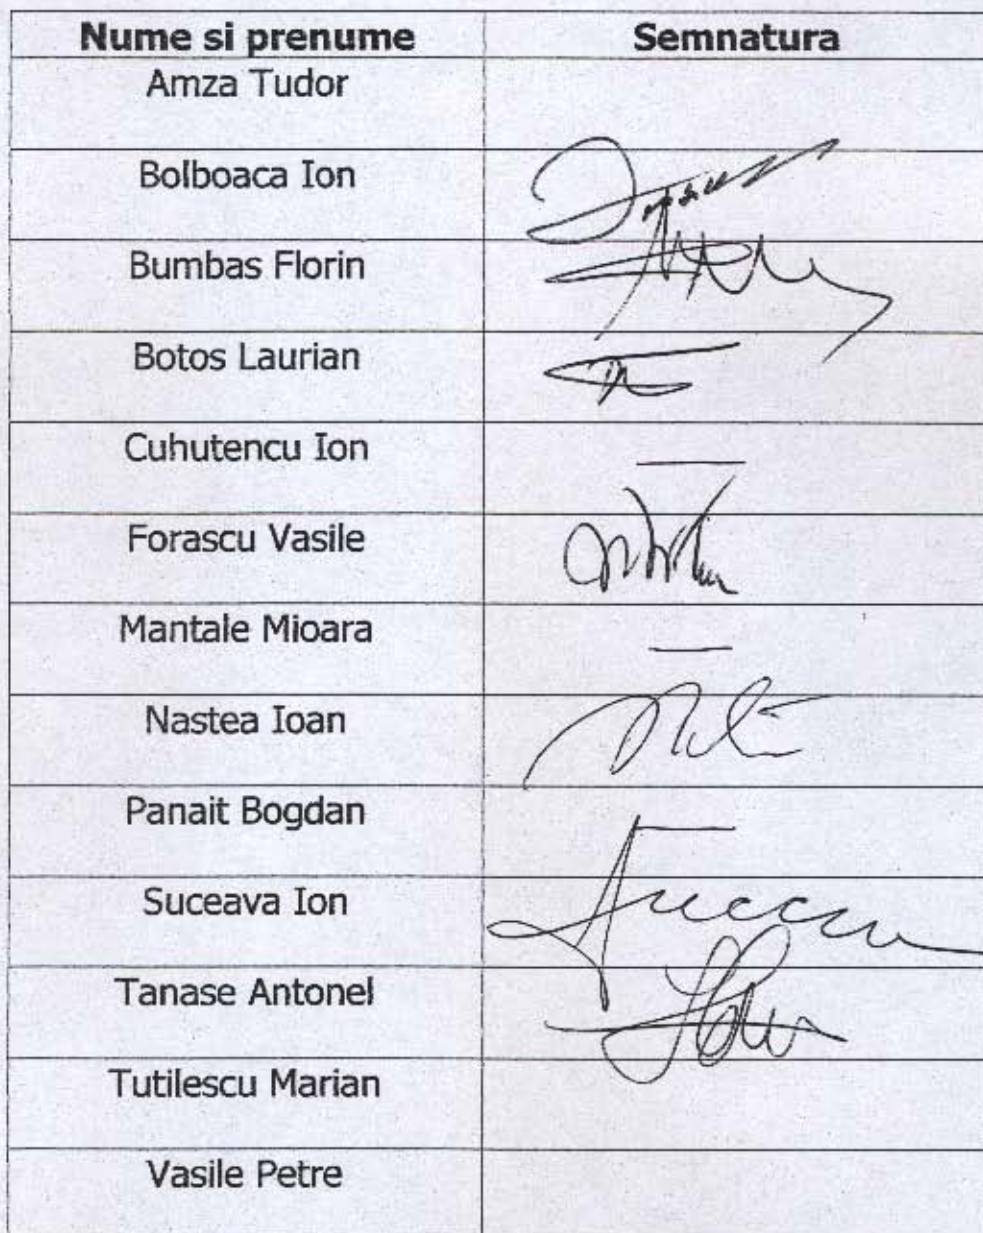 Nume si prenume Semnatura
Amza Tudor
Bolboaca Ion
Bumbas Florin
Botos Laurian
Cuhutencu Ion —
Forascu Vasile
Mantale Mioara —
Nastea Ioan
Panait Bogdan —
Suceava Ion
Tanase Antonel
Tutilescu Marian
Vasile Petre